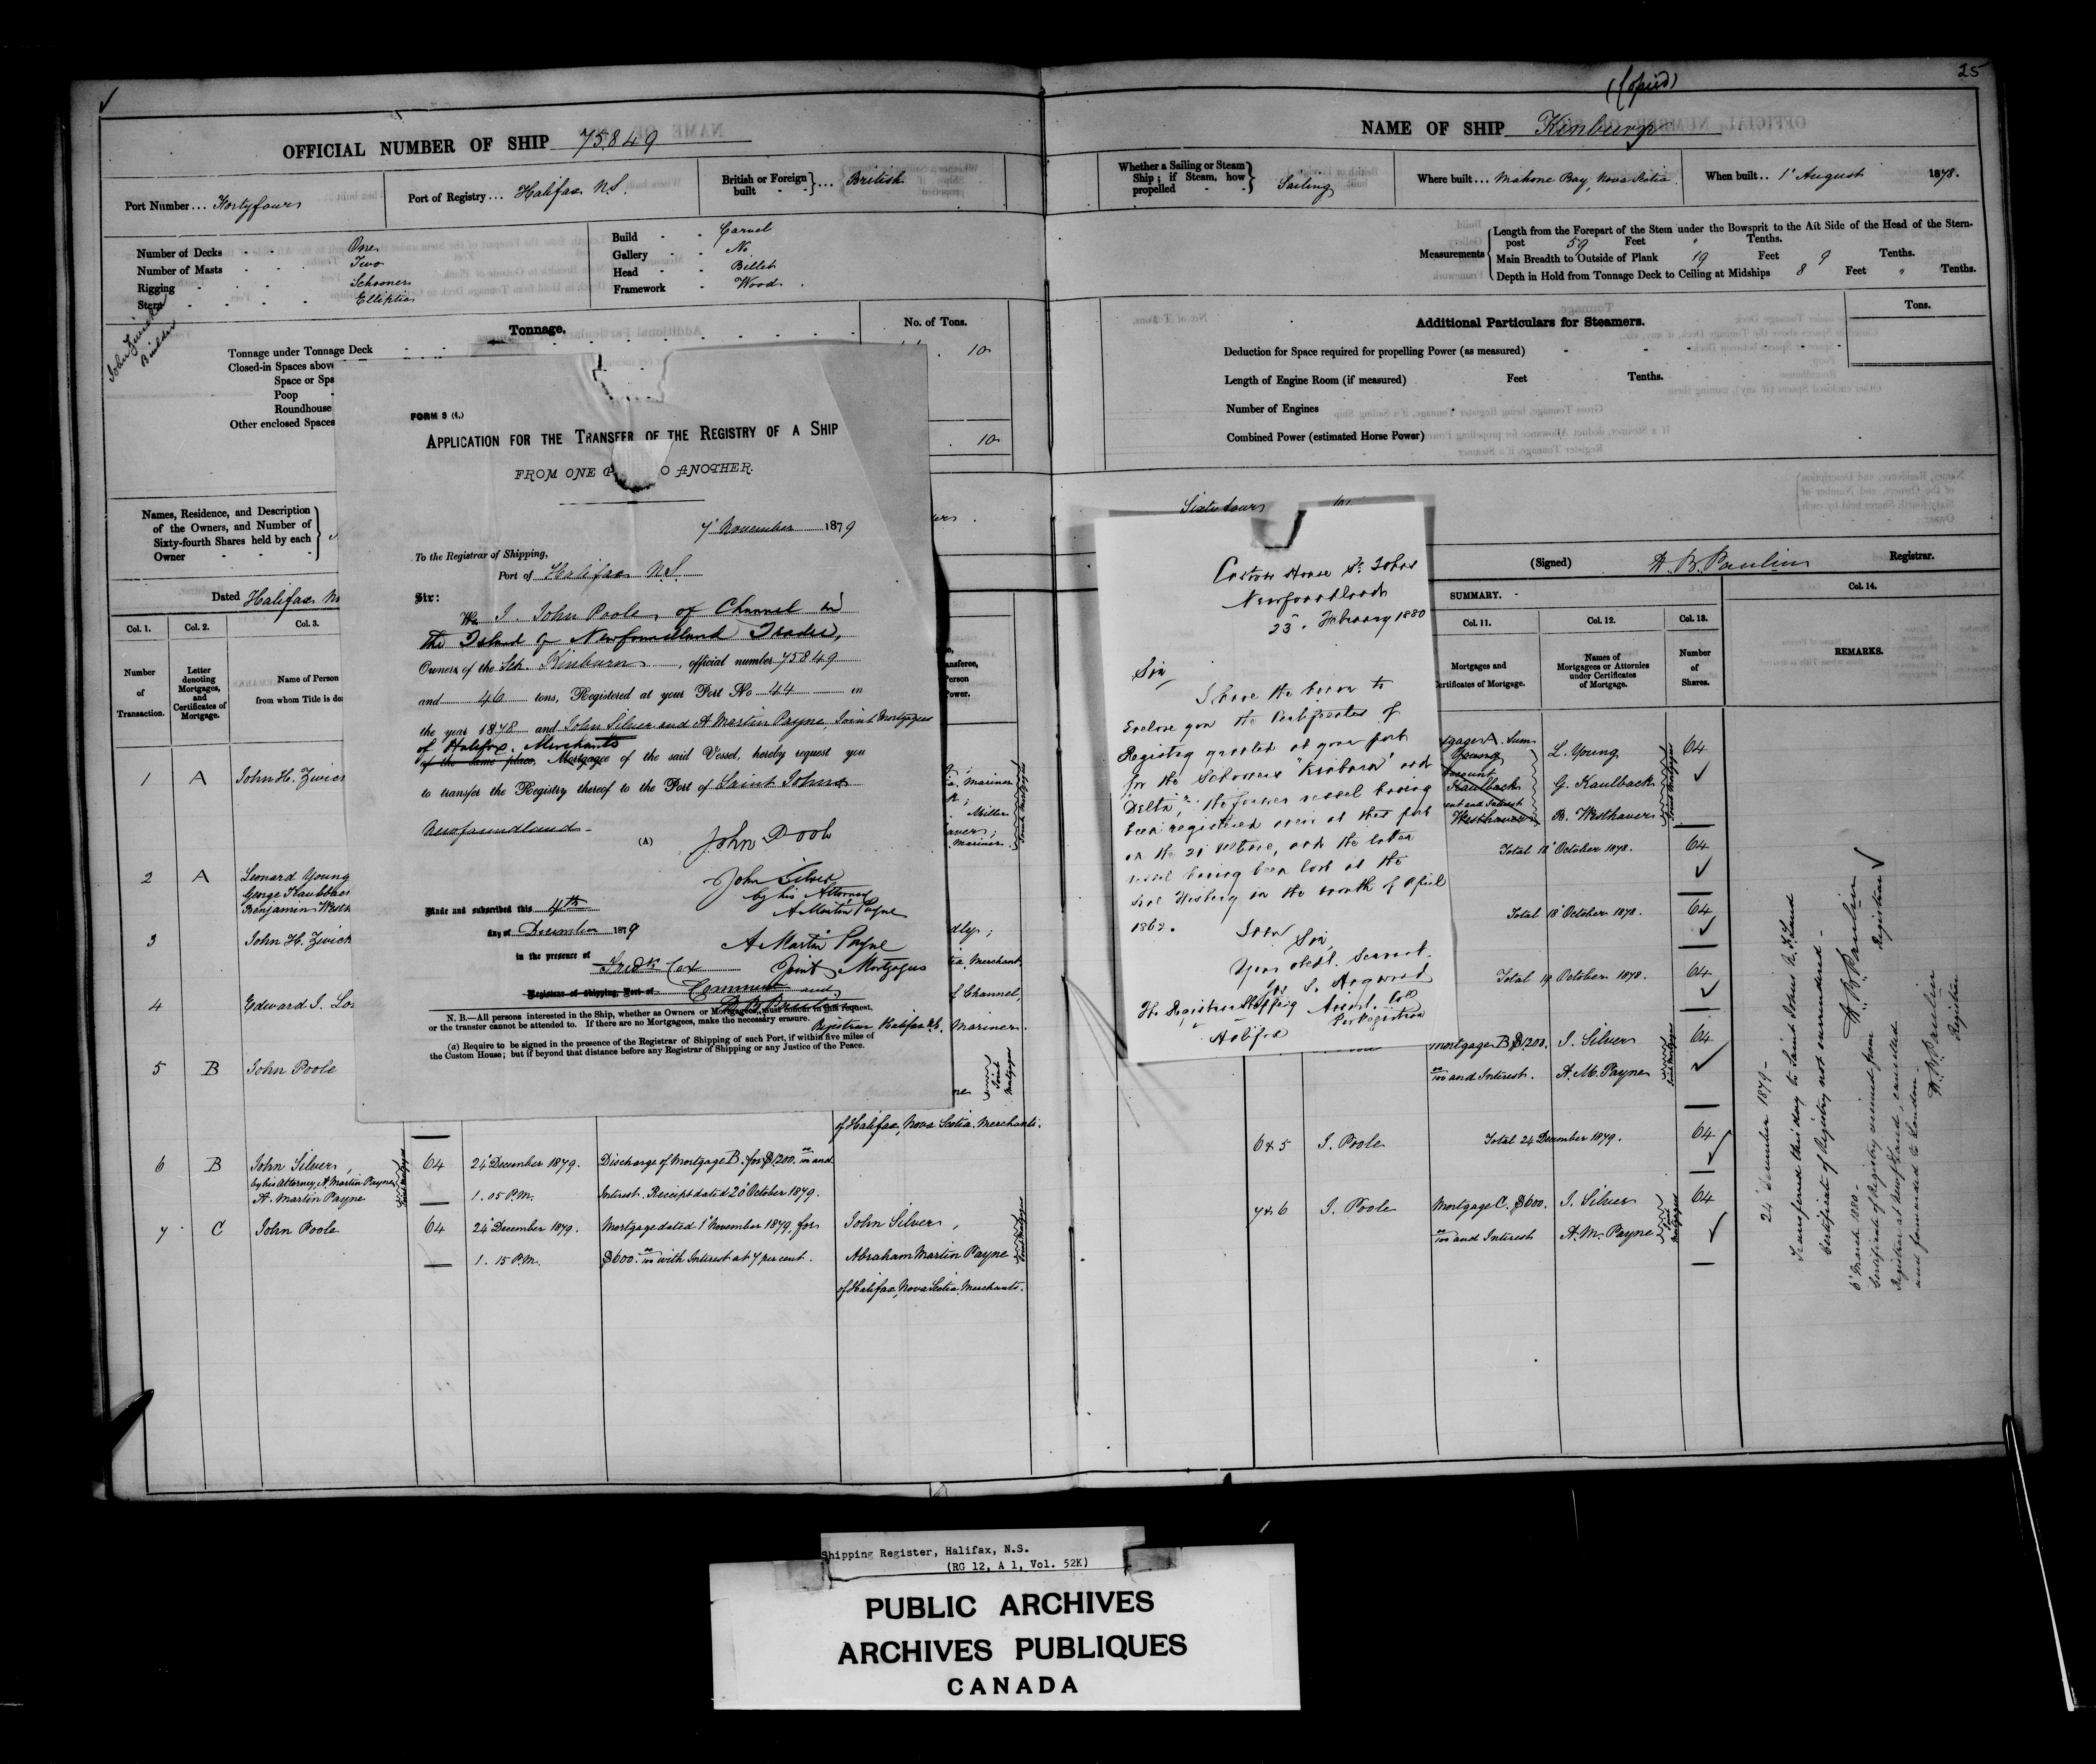 ✓
OFFICIAL NUMBER OF SHIP 75849
Port Number ... Fortyfour
Port of Registry ... Halifax N.S.
British or Foreign built } ... British
Number of Decks - One
Number of Masts - Two
Rigging - Schooner
Stern - Elliptic
Build - Carvel
Gallery - No
Head - Billet
Framework - Wood
Builder
Tonnage.
No. of Tons.
Tonnage under Tonnage Deck
10
Closed-in Spaces above
Space or Spa
Poop
Roundhouse
Other enclosed Spaces
10
Names, Residence, and Description
of the Owners, and Number of
Sixty-fourth Shares held by each
Owner
Dated Halifax
Col. 1. Col. 2. Col. 3.
Number of Transaction.
Letter denoting Mortgages, and Certificates of Mortgage.
Name of Person
from whom Title is de
1 A John H. Zwick
2 A Leonard Young
George Kaulback
Benjamin Westh
3 John H. Zwick
4 Edward J.
5 B John Poole
of Halifax, Nova Scotia. Merchants.
6 B John Silver, 64 24 December 1879. Discharge of Mortgage B. for $1200. 00/100 and
by his Attorney, A. Martin Payne
A. Martin Payne 1. 05 P.M. Interest. Receipt dated 20 October 1879.
7 C John Poole 64 24 December 1879. Mortgage dated 1 November 1879, for John Silver,
1. 15 P.M. $600. 00/100 with Interest at 7 per cent. Abraham Martin Payne
of Halifax, Nova Scotia, Merchants.
FORM 3 (i.)
APPLICATION FOR THE TRANSFER OF THE REGISTRY OF A SHIP
FROM ONE P O ANOTHER.
7 November 1879
To the Registrar of Shipping,
Port of Halifax N.S.
Sir:
We I John Poole, of Channel in
the Island of Newfoundland Trader,
Owners of the Sch. Kinburn, official number 75849
and 46 tons, Registered at your Port No 44 in
the year 1878 and John Silver and A Martin Payne, Joint Mortgagees
of Halifax. Merchants
of the same place, Mortgagee of the said Vessel, hereby request you
to transfer the Registry thereof to the Port of Saint Johns
Newfoundland -
(A) John Poole
John Silver
by his Attorney
A Martin Payne
Made and subscribed this 4th
day of December 1879
A Martin Payne
in the presence of
Fredk Cox Joint Mortgagees
Registrar of Shipping, Port of
Registrar Halifax N.S.
N. B.—All persons interested in the Ship, whether as Owners or Mortgagees, must concur in this request,
or the transfer cannot be attended to. If there are no Mortgagees, make the necessary erasure.
(a) Require to be signed in the presence of the Registrar of Shipping of such Port, if within five miles of
the Custom House; but if beyond that distance before any Registrar of Shipping or any Justice of the Peace.
Mariner
Miller
Mariner.
Merchant
Channel,
Mariner.
25
(Copied)
NAME OF SHIP Kinburn
Whether a Sailing or Steam Ship; if Steam, how propelled } Sailing
Where built ... Mahone Bay, Nova Scotia
When built .. 1 August 1878.
Measurements
Length from the Forepart of the Stem under the Bowsprit to the Aft Side of the Head of the Stern-
post 59 Feet " Tenths.
Main Breadth to Outside of Plank 19 Feet 9 Tenths.
Depth in Hold from Tonnage Deck to Ceiling at Midships 8 Feet " Tenths.
Additional Particulars for Steamers.
Tons.
Deduction for Space required for propelling Power (as measured)
Length of Engine Room (if measured) Feet Tenths.
Number of Engines
Combined Power (estimated Horse Power)
(Signed) Registrar.
SUMMARY.
Col. 11. Col. 12. Col. 13. Col. 14.
Mortgages and
Certificates of Mortgage.
Names of
Mortgagees or Attornies
under Certificates
of Mortgage.
Number
of
Shares.
REMARKS.
Young L. Young 64
Kaulback G. Kaulback ✓
Westhaver B. Westhaver
Total 18 October 1878. 64
✓
Total 18 October 1878. 64
✓
Total 19 October 1878. 64
✓
Mortgage B $1200. J. Silver 64
00/100 and Interest. A. M. Payne ✓
6 & 5 J. Poole Total 24 December 1879. 64
✓
7 & 6 J. Poole Mortgage C. $600. J. Silver 64
00/100 and Interest A. M. Payne ✓
Custom House St. Johns
Newfoundland
25. February 1880
Sir
I have the honor to
Enclose you the Certificates of
Registry granted at your port
for the Schooners "Kinburn" and
"Delta," the former vessel having
been registered anew at this port
on the 21 , and the latter
vessel having been lost at the
Seal Fishery in the month of April
1862.
Sir,
Your obedt. Servant.
The Registrar Shipping
Halifax
24 December 1879 -
Transferred this day to Saint Johns N. F. Land
Certificate of Registry not surrendered -
Registrar ✓
6 March 1880 -
Certificate of Registry received from
Registrar at Newfoundland, cancelled
and forwarded to London -
Registrar
Shipping Register, Halifax, N.S.
(RG 12, A 1, Vol. 52K)
PUBLIC ARCHIVES
ARCHIVES PUBLIQUES
CANADA